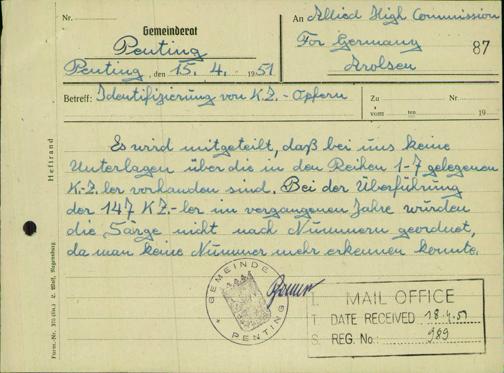 Nr.
Gemeinderat
Penting
Penting, den 15. 4. 1951
An Allied High Commission
For Germany
Arolsen
87
Betreff: Identifizierung von K.Z.-Opfern
Zu Nr.
vom ten 19
Es wird mitgeteilt, daß bei uns keine
Unterlagen über die in den Reihen 1-7 gelegenen
K.-Z.ler vorhanden sind. Bei der Überführung
der 147 KZ.-ler im vergangenen Jahre wurden
die Särge nicht nach Nummern geordnet,
da man keine Nummer mehr erkennen konnte.
Heftrand
GEMEINDE
PENTING
I. MAIL OFFICE
T. DATE RECEIVED 18.4.51
S. REG. No: 989